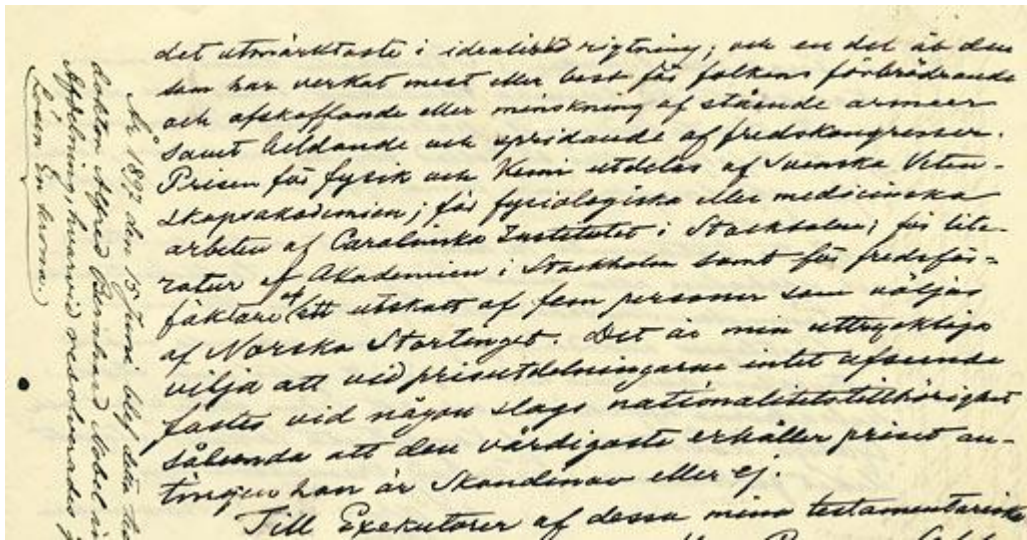 det utmärktaste i idealisk rigtning; och en del åt den
som har verkat mest eller best för folkens förbrödrande
och afskaffande eller minskning af stående armeer
samt bildande och spridande af fredskongresser.
Prisen för fysik och Kemi utdelas af Svenska Veten-
skapsakademien; för fysiologiska eller medicinska
arbeten af Carolinska Institutet i Stockholm; för lite-
ratur af Akademien i Stockholm samt för fredsför-
fäktare af ett utskott af fem personer som väljas
af Norska Stortinget. Det är min uttryckliga
vilja att vid prisutdelningarne intet afseende
fästes vid någon slags nationalitetstillhörighet
sålunda att den värdigaste erhåller priset an-
tingen han är Skandinav eller ej.
Till Exekutorer af dessa mina testamentariska
År 1897 den 15 Juni blef detta
doktor Alfred Bernhard Nobel
hvarvid
Lösen En krona.